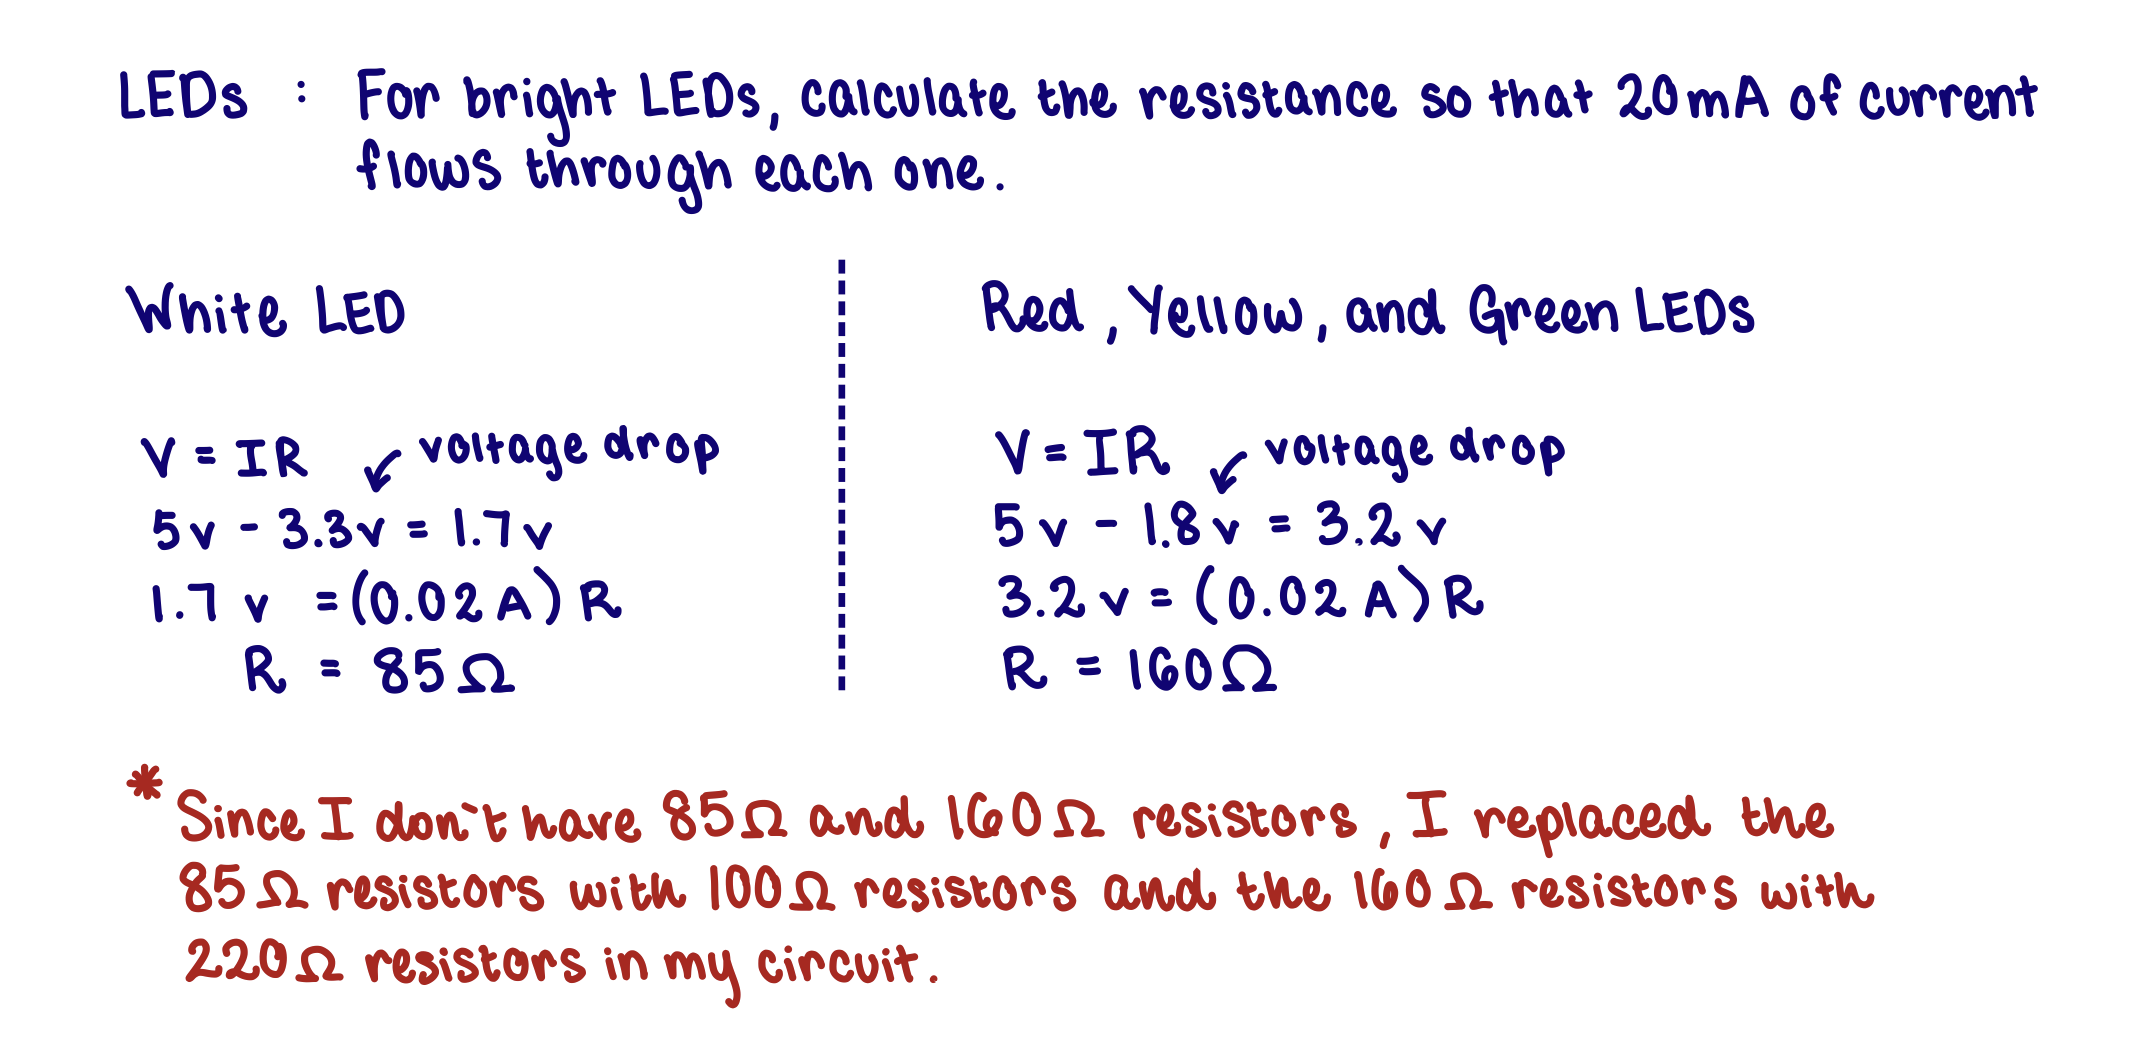 LEDs : For bright LEDs, calculate the resistance so that 20mA of current
flows through each one.
White LED
V = IR
voltage drop
5v - 3.3v = 1.7v
1.7 v = (0.02 A) R
R = 85Ω
Red, Yellow, and Green LEDs
V = IR
voltage drop
5v - 1.8v = 3.2v
3.2v = (0.02 A) R
R = 160Ω
* Since I don't have 85Ω and 160Ω resistors, I replaced the
85Ω resistors with 100Ω resistors and the 160Ω resistors with
220Ω resistors in my circuit.